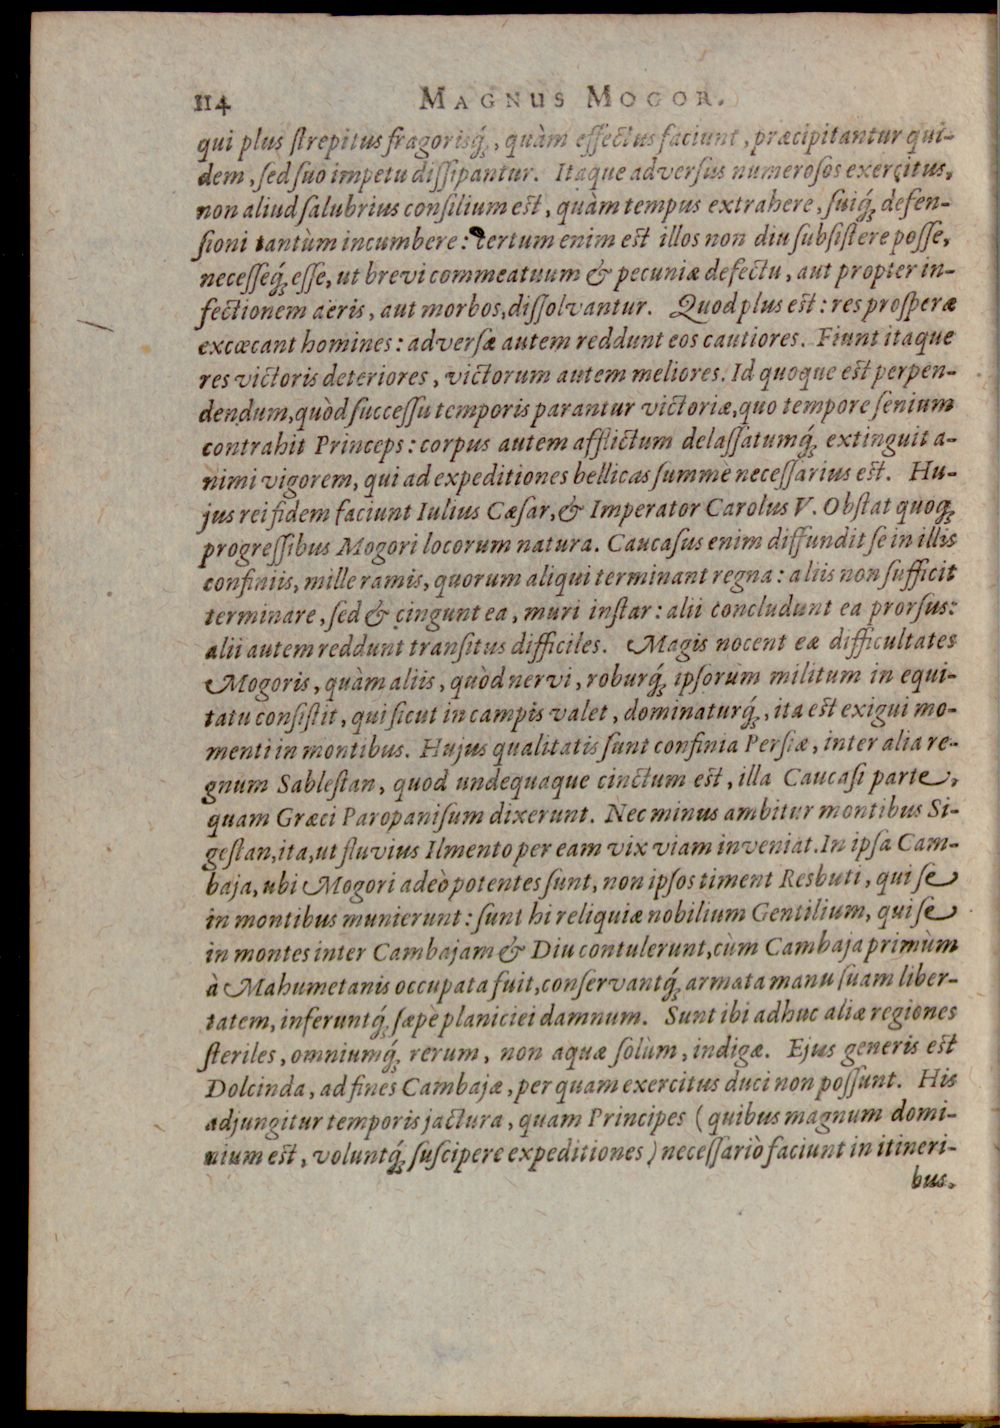 114 MAGNUS MOGOR.
qui plus ſtrepitus fragorisq́;, quàm effectus faciunt, præcipitantur qui-
dem, ſed ſuo impetu diſſipantur. Itaque adverſus numeroſos exercitus,
non aliud ſalubrius conſilium eſt, quàm tempus extrahere, ſuiq́; defen-
ſioni tantùm incumbere: certum enim eſt illos non diu ſubſiſtere poſſe,
neceſſeq́; eſſe, ut brevi commeatuum & pecuniæ defectu, aut propter in-
fectionem aëris, aut morbos, diſſolvantur. Quod plus eſt: res proſperæ
excœcant homines: adverſæ autem reddunt eos cautiores. Fiunt itaque
res victoris deteriores, victorum autem meliores. Id quoque eſt perpen-
dendum, quòd ſucceſſu temporis parantur victoriæ, quo tempore ſenium
contrahit Princeps: corpus autem afflictum delaſſatumq́; extinguit a-
nimi vigorem, qui ad expeditiones bellicas ſumme neceſſarius eſt. Hu-
jus rei fidem faciunt Iulius Cæſar, & Imperator Carolus V. Obſtat quoq;
progreſſibus Mogori locorum natura. Caucaſus enim diffundit ſe in illis
confiniis, mille ramis, quorum aliqui terminant regna: aliis non ſufficit
terminare, ſed & cingunt ea, muri inſtar: alii concludunt ea prorſus:
alii autem reddunt tranſitus difficiles. Magis nocent eæ difficultates
Mogoris, quàm aliis, quòd nervi, roburq́; ipſorum militum in equi-
tatu conſiſtit, qui ſicut in campis valet, dominaturq́;, ita eſt exigui mo-
menti in montibus. Hujus qualitatis ſunt confinia Perſiæ, inter alia re-
gnum Sableſtan, quod undequaque cinctum eſt, illa Caucaſi parte,
quam Græci Paropaniſum dixerunt. Nec minus ambitur montibus Si-
geſtan, ita, ut fluvius Ilmento per eam vix viam inveniat. In ipſa Cam-
baja, ubi Mogori adeò potentes ſunt, non ipſos timent Resbuti, qui ſe
in montibus munierunt: ſunt hi reliquiæ nobilium Gentilium, qui ſe
in montes inter Cambajam & Diu contulerunt, cùm Cambaja primùm
à Mahumetanis occupata fuit, conſervantq́; armata manu ſuam liber-
tatem, inferuntq́; ſæpè planiciei damnum. Sunt ibi adhuc aliæ regiones
ſteriles, omniumq́; rerum, non aquæ ſolùm, indigæ. Ejus generis eſt
Dolcinda, ad fines Cambajæ, per quam exercitus duci non poſſunt. His
adjungitur temporis jactura, quam Principes (quibus magnum domi-
nium eſt, voluntq́; ſuſcipere expeditiones) neceſſariò faciunt in itineri-
bus.